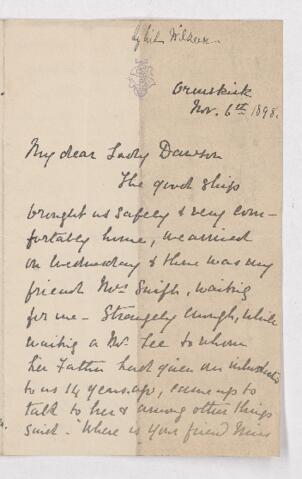 Ormskirk
Nov. 6th 1898.
My dear Lady Dawson
The good ship
brought us safely & very com-
fortably home, we arrived
on Wednesday & there was my
friend Mrs Snift, waiting
for me - Strangely enough, while
waiting a Mr. Lee to whom
her Father had given an introduction
to us 14 years ago, came up to
talk to her & among other things
said - "Where is your friend Miss